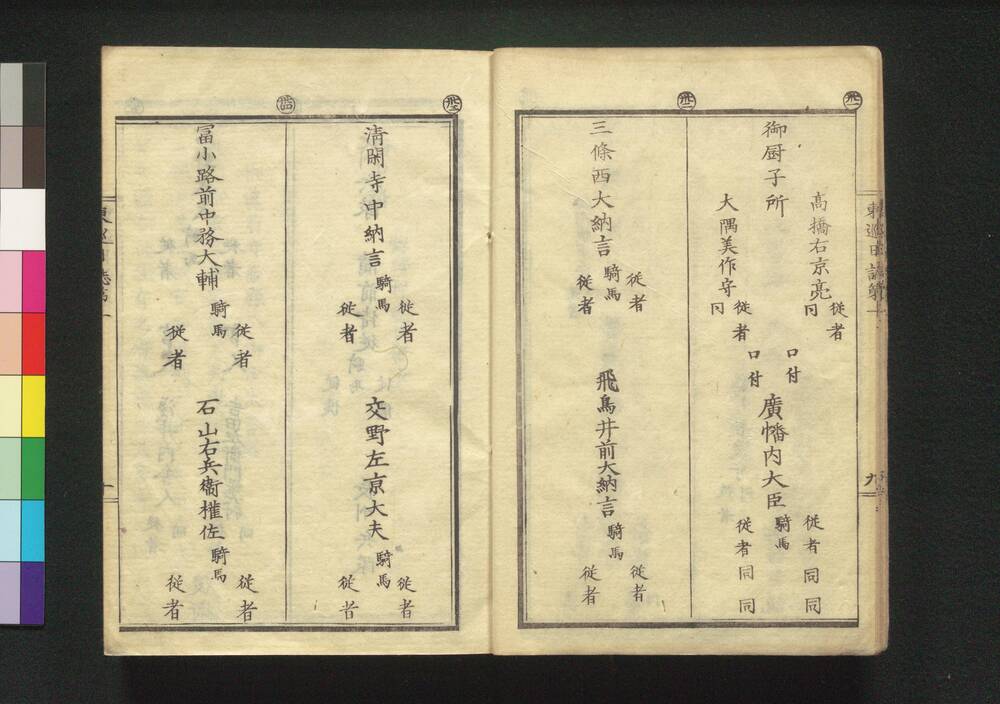 御厨子所
高橋右京亮
従者
同
大隅美作守
従者
同
口付
口付
廣幡内大臣
騎馬
従者同同
従者同同
三條西大納言
騎馬
従者
従者
飛鳥井前大納言
騎馬
従者
従者
清閑寺中納言
騎馬
従者
従者
交野左京大夫
騎馬
従者
従者
冨小路前中務大輔
騎馬
従者
従者
石山右兵衞權佐
騎馬
従者
従者
九